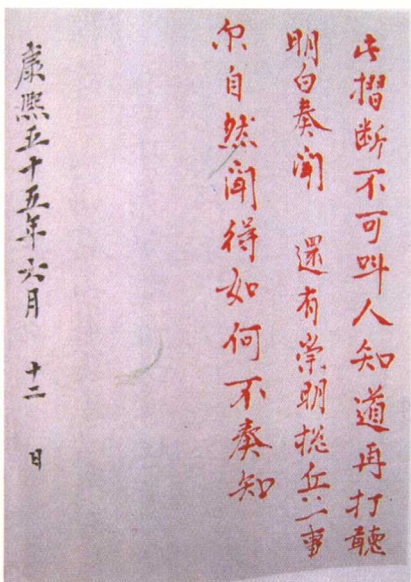 此摺断不可叫人知道再打聼
明白奏闻 還有崇明摠兵一事
尔自然闻得如何不奏知
康熙五十五年六月 十二 日